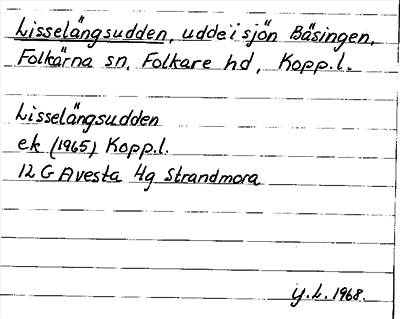 Lisselängsudden, udde i sjön Bäsingen,
Folkärna sn, Folkare hd, Kopp.l.
Lisselängsudden
ek (1965) Kopp.l.
12 G Avesta 4g Strandmora
Y.L. 1968.